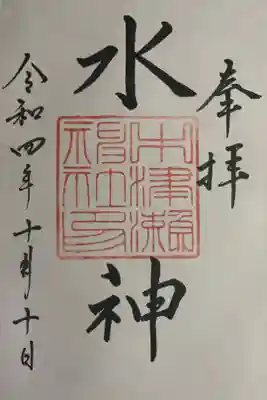 奉拝
水神
中津瀬
神社印
令和四年十月十日